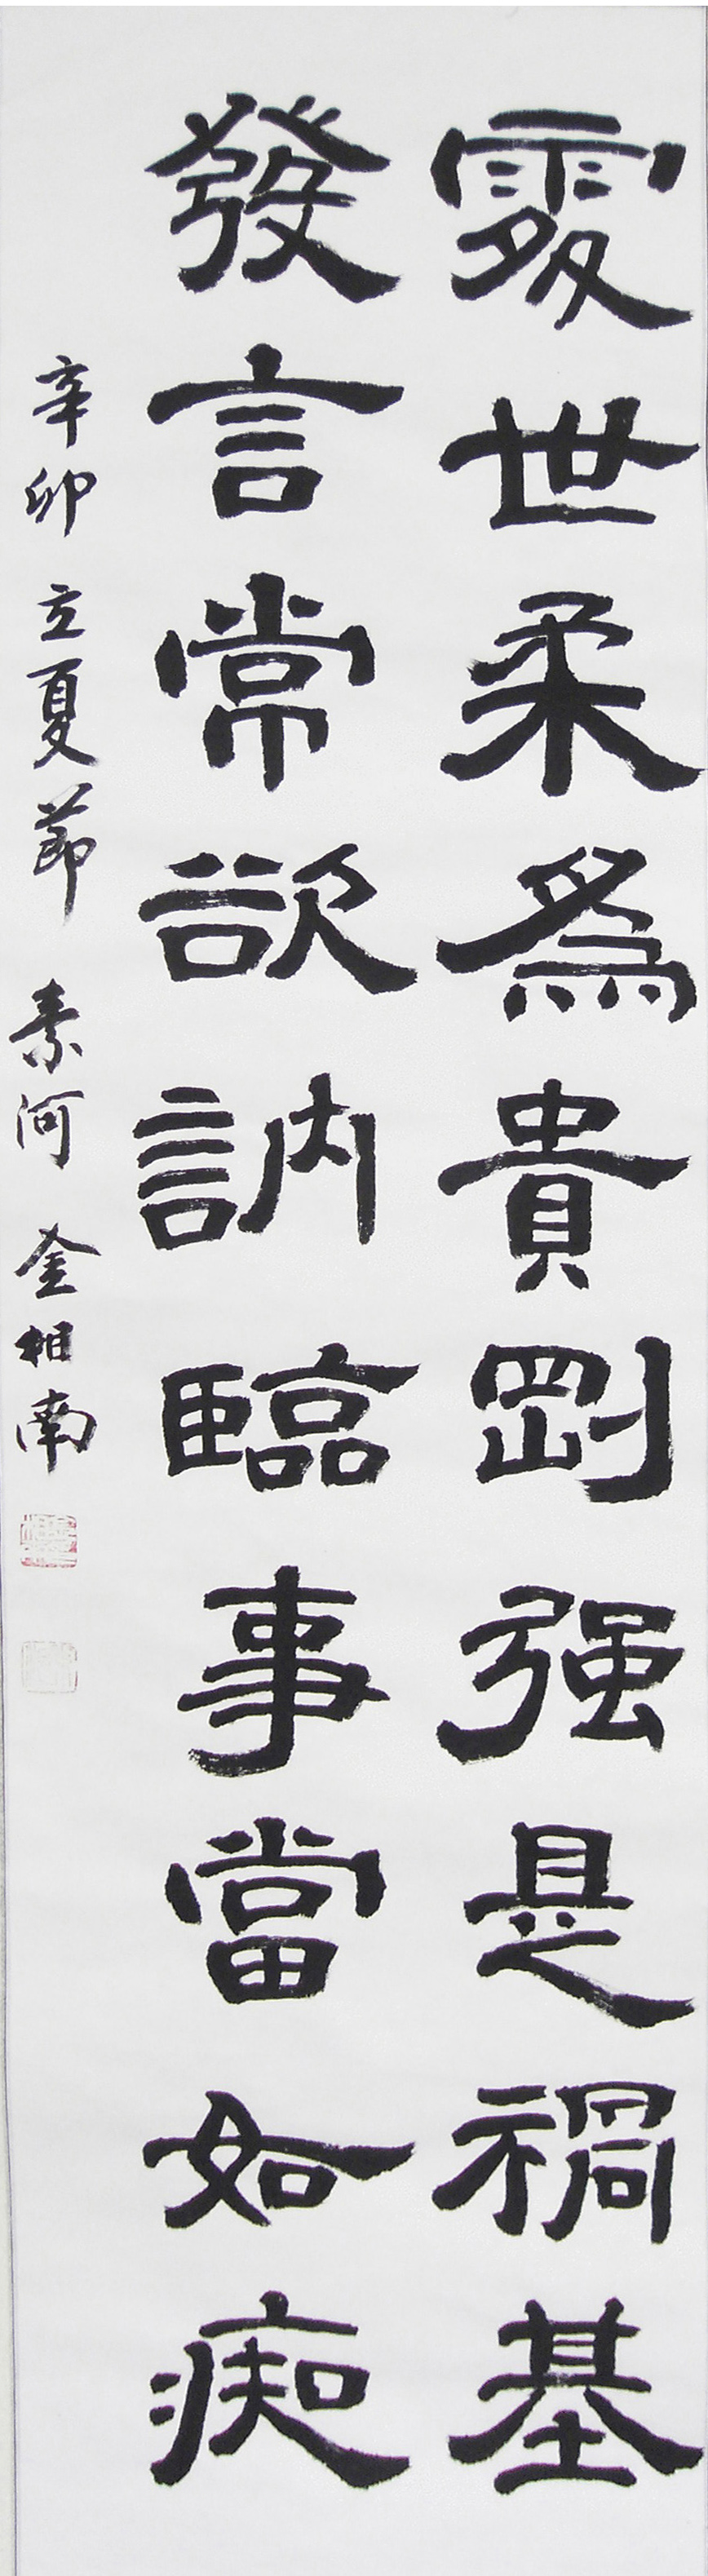 處世柔爲貴剛强是禍基
發言常欲訥臨事當如痴
辛卯立夏節 素河 金相南